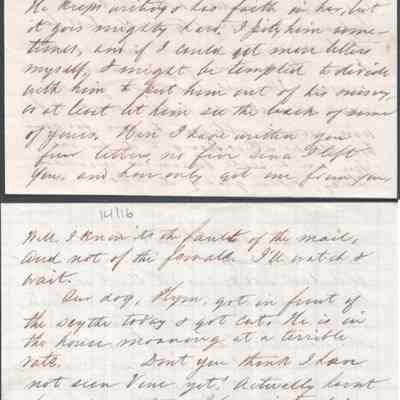 He keeps writing & has faith in her, but
it goes mighty hard. I pity him some-
times, and if I could get more letters
myself, I might be tempted to divide
with him to put him out of his misery
or at least let him see the back of some
of yours. Here I have written you
four letters, no five since I left
you, and have only got one from you
14716
Well I know its the fault of the mail,
and not of the female. I'll watch &
wait.
Our dog, got in front of
the scythe today & got cut. He is in
the house moaning at a terrible
rate. Dont you think I have
not seen Vine yet! Actually